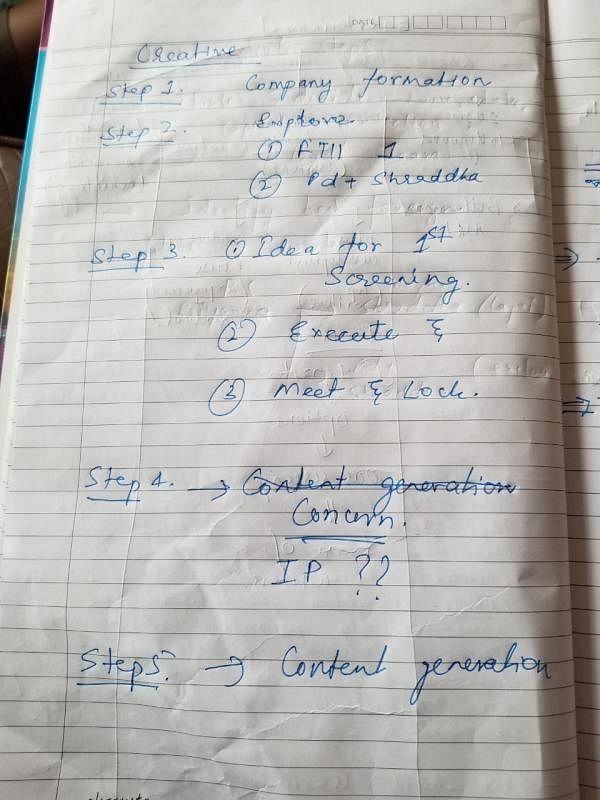 DATE
Creative
Step 1. Company formation
Step 2. Explore.
① FTII 1
② Pd + Shraddha
Step 3. ① Idea for 1st
Screening.
② Execute &
③ Meet & Lock.
Step 4. → Content generation
Concern.
IP ??
Step 5? → Content generation